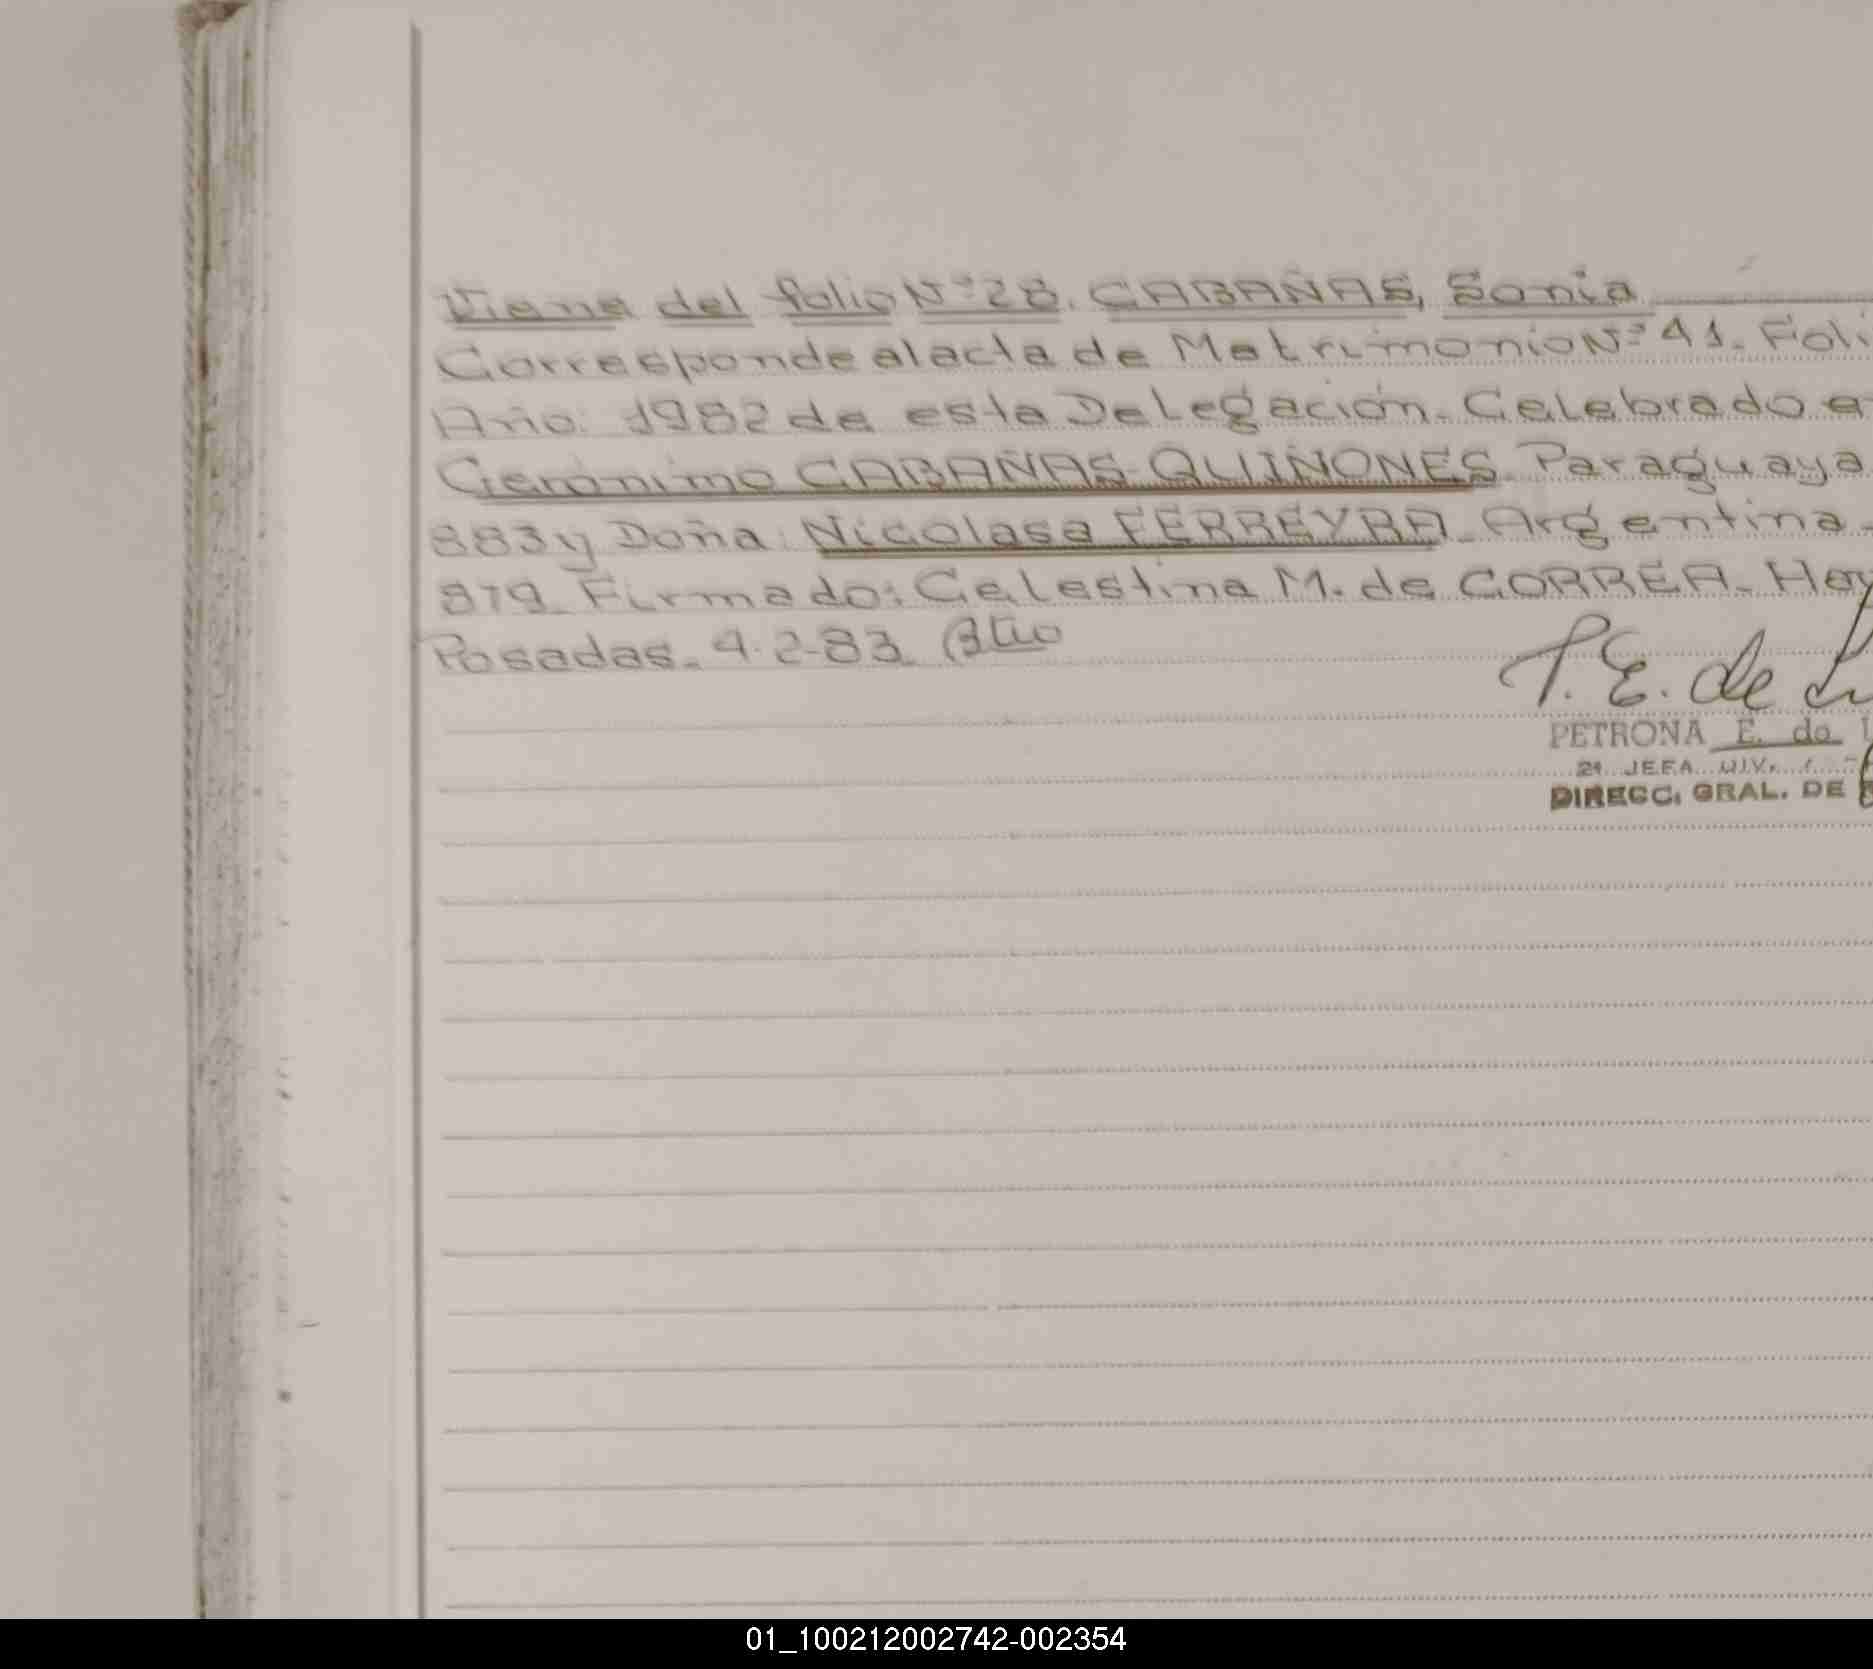 Viene del folio Nº 28. CABAÑAS, Sonia
Corresponde al acta de Matrimonio Nº 41. Foli
Año: 1982 de esta Delegación. Celebrado e
Gerónimo CABAÑAS-QUIÑONES. Paraguaya
883 y Doña: Nicolasa FERREYRA. Argentina.
879. Firmado: Celestina M. de CORREA. Hay
Posadas. 4-2-83.
P. E. de
PETRONA E. de
2ª JEFA DIV.
DIRECC. GRAL. DE
01_100212002742-002354